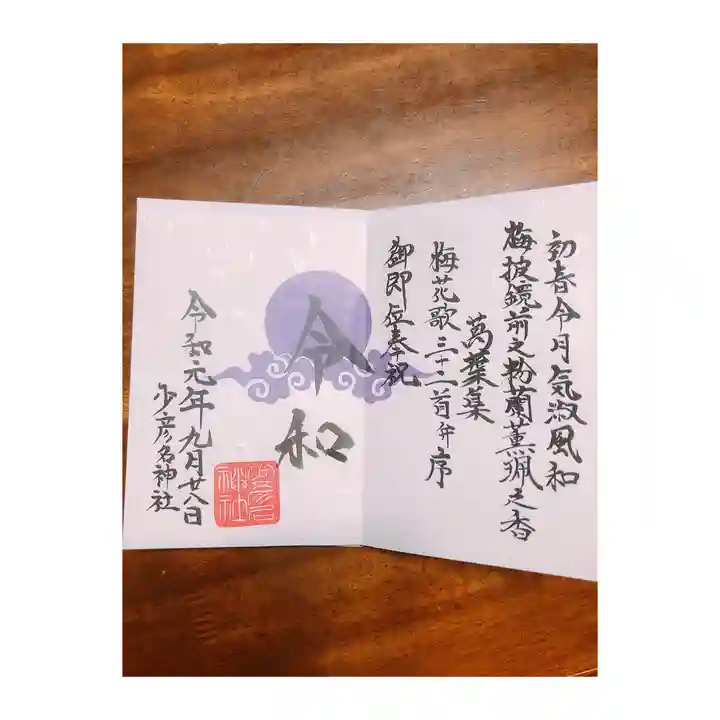 初春令月気淑風和
梅披鏡前之粉蘭薫珮之香
萬葉集
梅花歌三十二首并序
御即位奉祝
令和
令和元年九月廿八日
少彦名神社